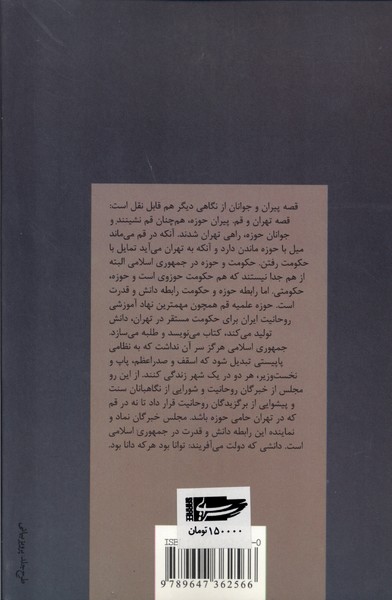 قصه پیران و جوانان از نگاهی دیگر هم قابل نقل است:
قصه تهران و قم. پیران حوزه، هم‌چنان قم نشینند و
جوانان حوزه، راهی تهران شدند. آنکه در قم می‌ماند
میل با حوزه ماندن دارد و آنکه به تهران می‌آید تمایل با
حکومت رفتن. حکومت و حوزه در جمهوری اسلامی البته
از هم جدا نیستند که هم حکومت حوزوی است و حوزه،
حکومتی. اما رابطه حوزه و حکومت رابطه دانش و قدرت
است. حوزه علمیه قم همچون مهمترین نهاد آموزشی
روحانیت ایران برای حکومت مستقر در تهران، دانش
تولید می‌کند، کتاب می‌نویسد و طلبه می‌سازد.
جمهوری اسلامی هرگز سر آن نداشت که به نظامی
پاپیستی تبدیل شود که اسقف و صدراعظم، پاپ و
نخست‌وزیر، هر دو در یک شهر زندگی کنند. از این رو
مجلس از خبرگان روحانیت و شورایی از نگاهبانان سنت
و پیشوایی از برگزیدگان روحانیت قرار داد تا نه در قم
که در تهران حامی حوزه باشد. مجلس خبرگان نماد و
نماینده این رابطه دانش و قدرت در جمهوری اسلامی
است. دانشی که دولت می‌آفریند: توانا بود هر که دانا بود.
۱۵۰۰۰۰ تومان
ISB
-0
9789647362566
طرح جلد: پرویز بیانی